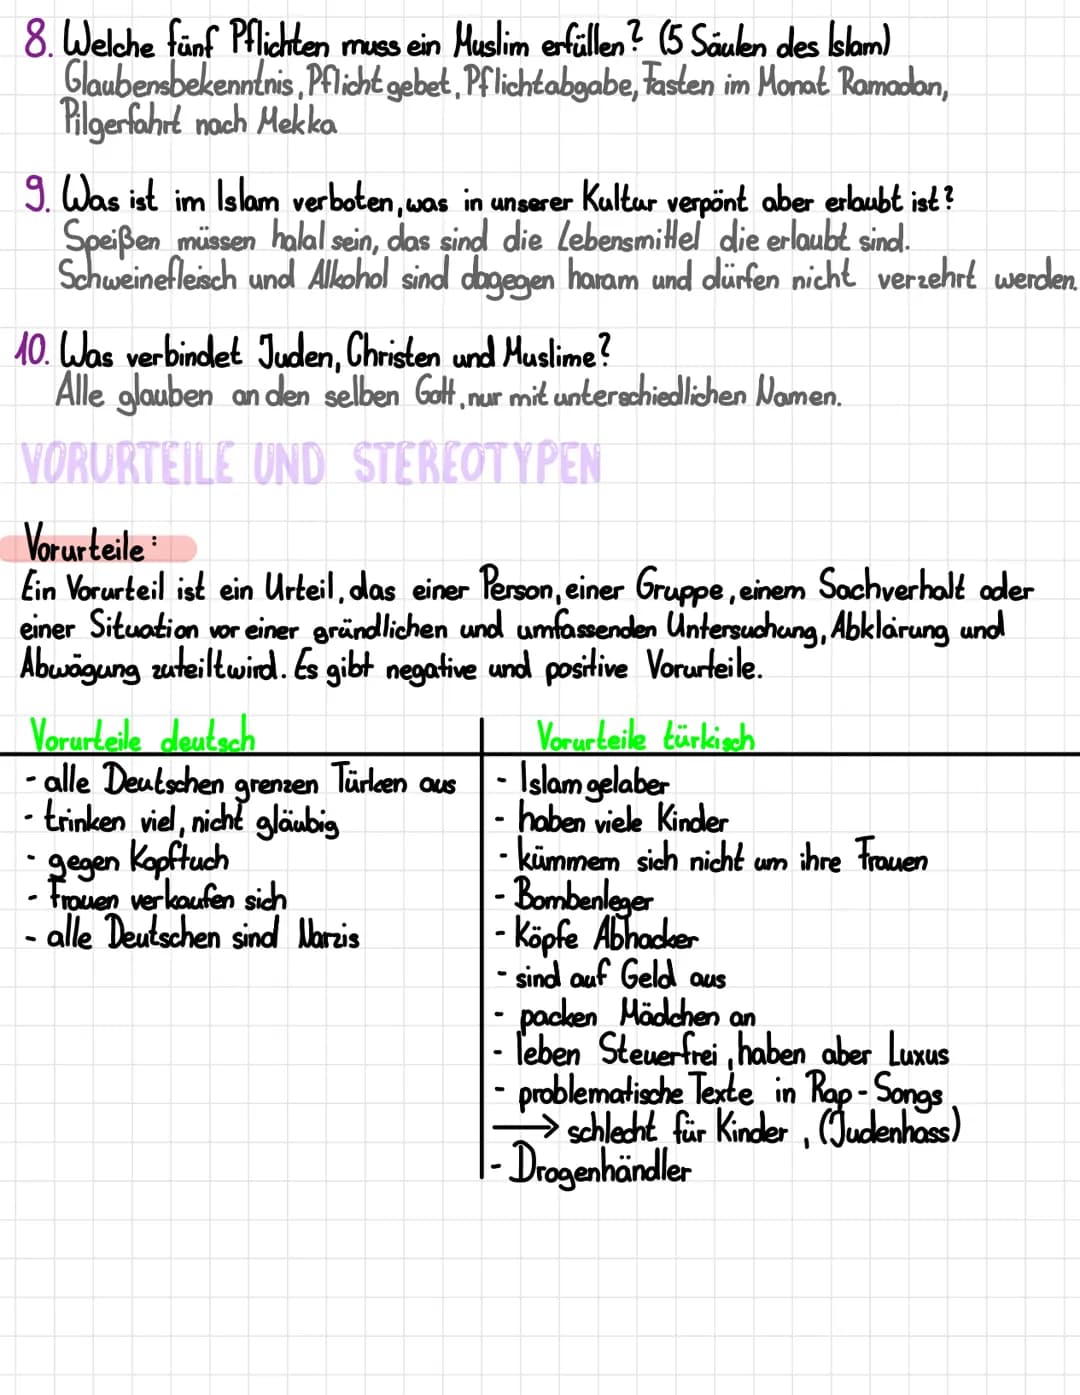 8. Welche fünf Pflichten muss ein Muslim erfüllen? (5 Säulen des Islam)
Glaubensbekenntnis, Pflichtgebet, Pflichtabgabe, Fasten im Monat Ramadan,
Pilgerfahrt nach Mekka
9. Was ist im Islam verboten, was in unserer Kultur verpönt aber erlaubt ist?
Speißen müssen halal sein, das sind die Lebensmittel die erlaubt sind.
Schweinefleisch und Alkohol sind dagegen haram und dürfen nicht verzehrt werden.
10. Was verbindet Juden, Christen und Muslime?
Alle glauben an den selben Gott, nur mit unterschiedlichen Namen.
VORURTEILE UND STEREOTYPEN
Vorurteile:
Ein Vorurteil ist ein Urteil, das einer Person, einer Gruppe, einem Sachverhalt oder
einer Situation vor einer gründlichen und umfassenden Untersuchung, Abklärung und
Abwägung zuteilt wird. Es gibt negative und positive Vorurteile.
Vorurteile deutsch
- alle Deutschen grenzen Türken aus
- trinken viel, nicht gläubig
- gegen Kopftuch
- Frauen verkaufen sich
- alle Deutschen sind Narzis
Vorurteile türkisch
- Islam gelaber
- haben viele Kinder
- kümmern sich nicht um ihre Frauen
- Bombenleger
- Köpfe Abhacker
- sind auf Geld aus
- packen Mädchen an
- leben Steuerfrei, haben aber Luxus
- problematische Texte in Rap-Songs
→ schlecht für Kinder, (Judenhass)
- Drogenhändler